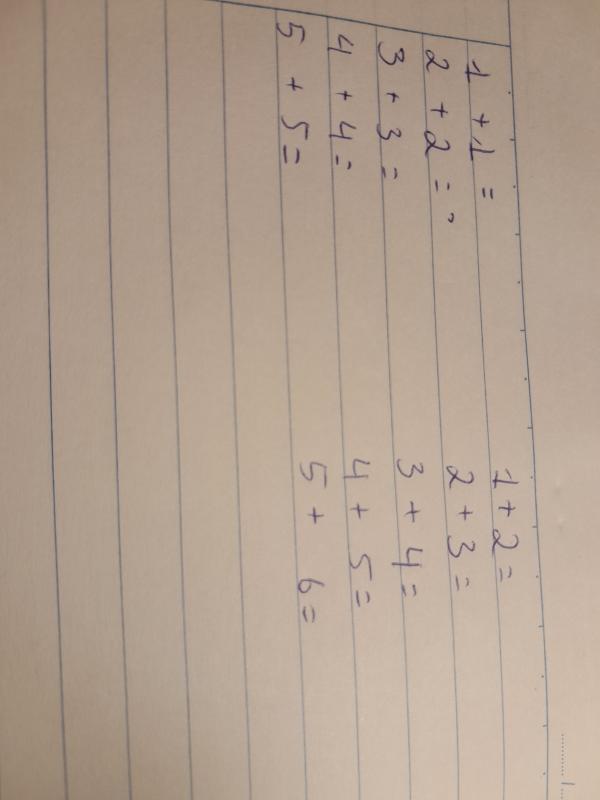 1 + 1 = 1 + 2 =
2 + 2 = 2 + 3 =
3 + 3 = 3 + 4 =
4 + 4 = 4 + 5 =
5 + 5 = 5 + 6 =